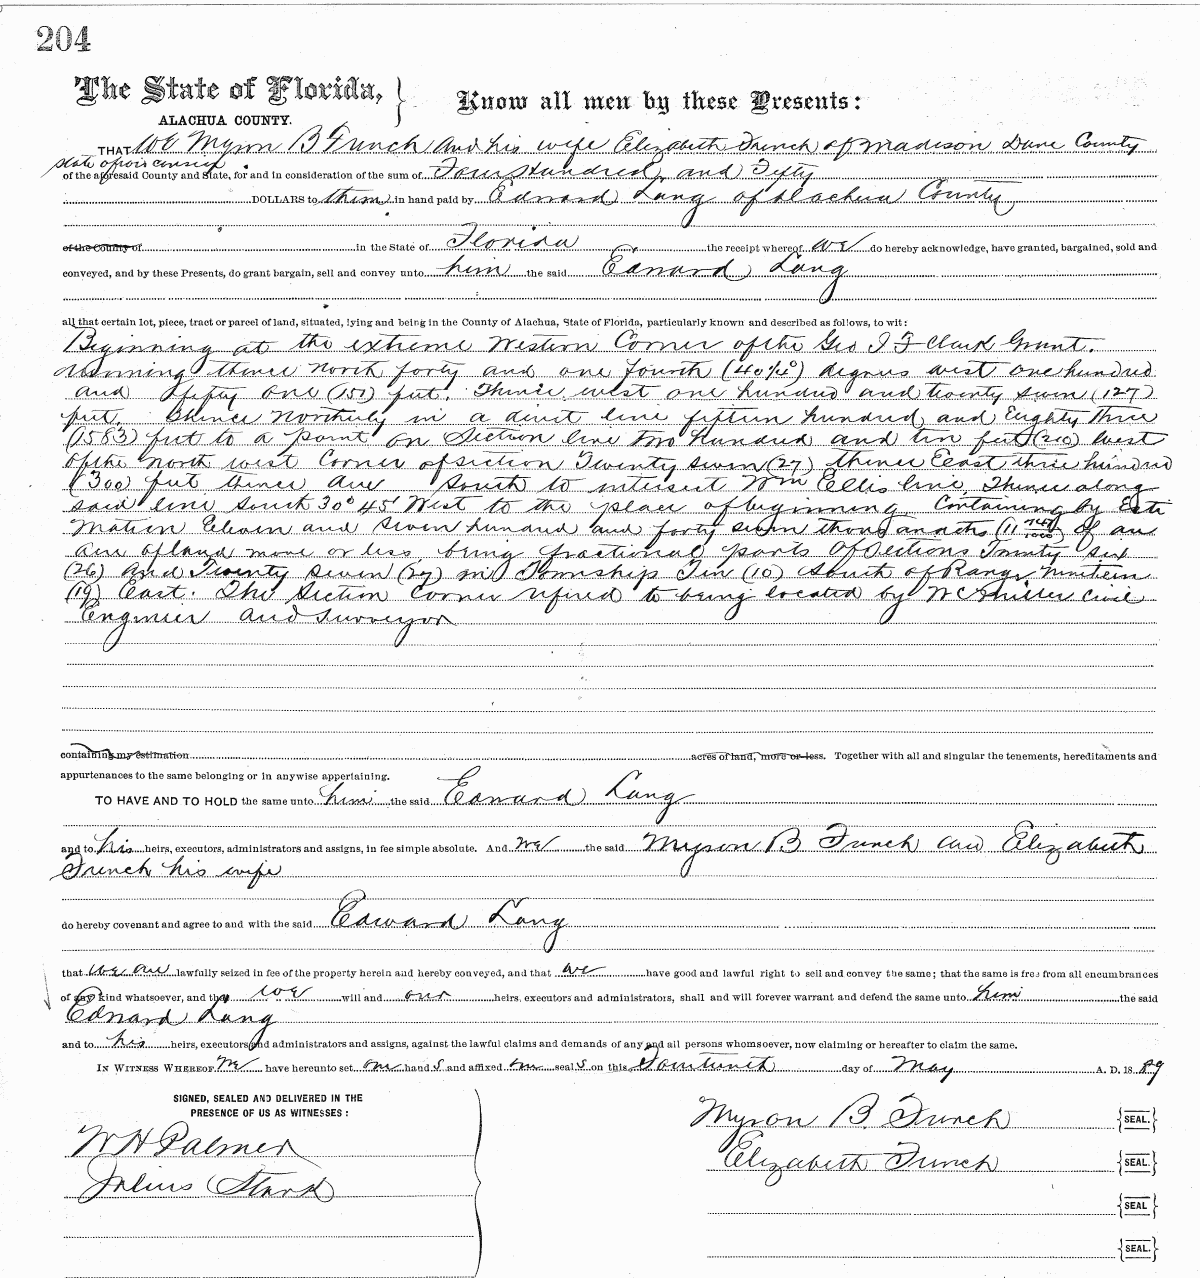 204
The State of Florida,
ALACHUA COUNTY.
Know all men by these Presents:
THAT We Myron B French and his wife Elizabeth French of Madison Dane County
state of wisconsin
of the aforesaid County and State, for and in consideration of the sum of Four Hundred and Fifty
DOLLARS to them in hand paid by Edward Lang of Alachua County
of the County of in the State of Florida the receipt whereof we do hereby acknowledge, have granted, bargained, sold and
conveyed, and by these Presents, do grant bargain, sell and convey unto him the said Edward Lang
all that certain lot, piece, tract or parcel of land, situated, lying and being in the County of Alachua, State of Florida, particularly known and described as follows, to wit:
Beginning at the extreme Western Corner of the Geo I F Clark Grant.
Running thence North forty and one fourth (40¼°) degrees west one hundred
and fifty one (151) feet. Thence west one hundred and twenty seven (127)
feet. Thence Northerly in a direct line fifteen hundred and Eighty three
(1583) feet to a point on Section line two hundred and ten feet (210) West
of the North west Corner of section Twenty seven (27) thence East three hundred
(300) feet thence due South to intersect Wm Ellis line, Thence along
said line South 30° 45' West to the place of beginning Containing by Esti
mation Eleven and seven hundred and forty seven thousandths (11 747/1000) of an
acre of land more or less being fractional parts of Sections Twenty six
(26) and Twenty seven (27) in Township Ten (10) South of Range Nineteen
(19) East. The Section Corner refered to being located by W C Miller Civil
Engineer and Surveyor
containing my estimation acres of land, more or less. Together with all and singular the tenements, hereditaments and
appurtenances to the same belonging or in anywise appertaining.
TO HAVE AND TO HOLD the same unto him the said Edward Lang
and to his heirs, executors, administrators and assigns, in fee simple absolute. And we the said Myron B French and Elizabeth
French his wife
do hereby covenant and agree to and with the said Edward Lang
that we are lawfully seized in fee of the property herein and hereby conveyed, and that we have good and lawful right to sell and convey the same; that the same is free from all encumbrances
of any kind whatsoever, and that we will and our heirs, executors and administrators, shall and will forever warrant and defend the same unto him the said
Edward Lang
and to his heirs, executors and administrators and assigns, against the lawful claims and demands of any and all persons whomsoever, now claiming or hereafter to claim the same.
IN WITNESS WHEREOF We have hereunto set our hand s and affixed our seal s on this Fourteenth day of May A. D. 18 89
SIGNED, SEALED AND DELIVERED IN THE
PRESENCE OF US AS WITNESSES:
W H Palmer
Julius
Myron B French {SEAL.}
Elizabeth French {SEAL.}
{SEAL}
{SEAL.}